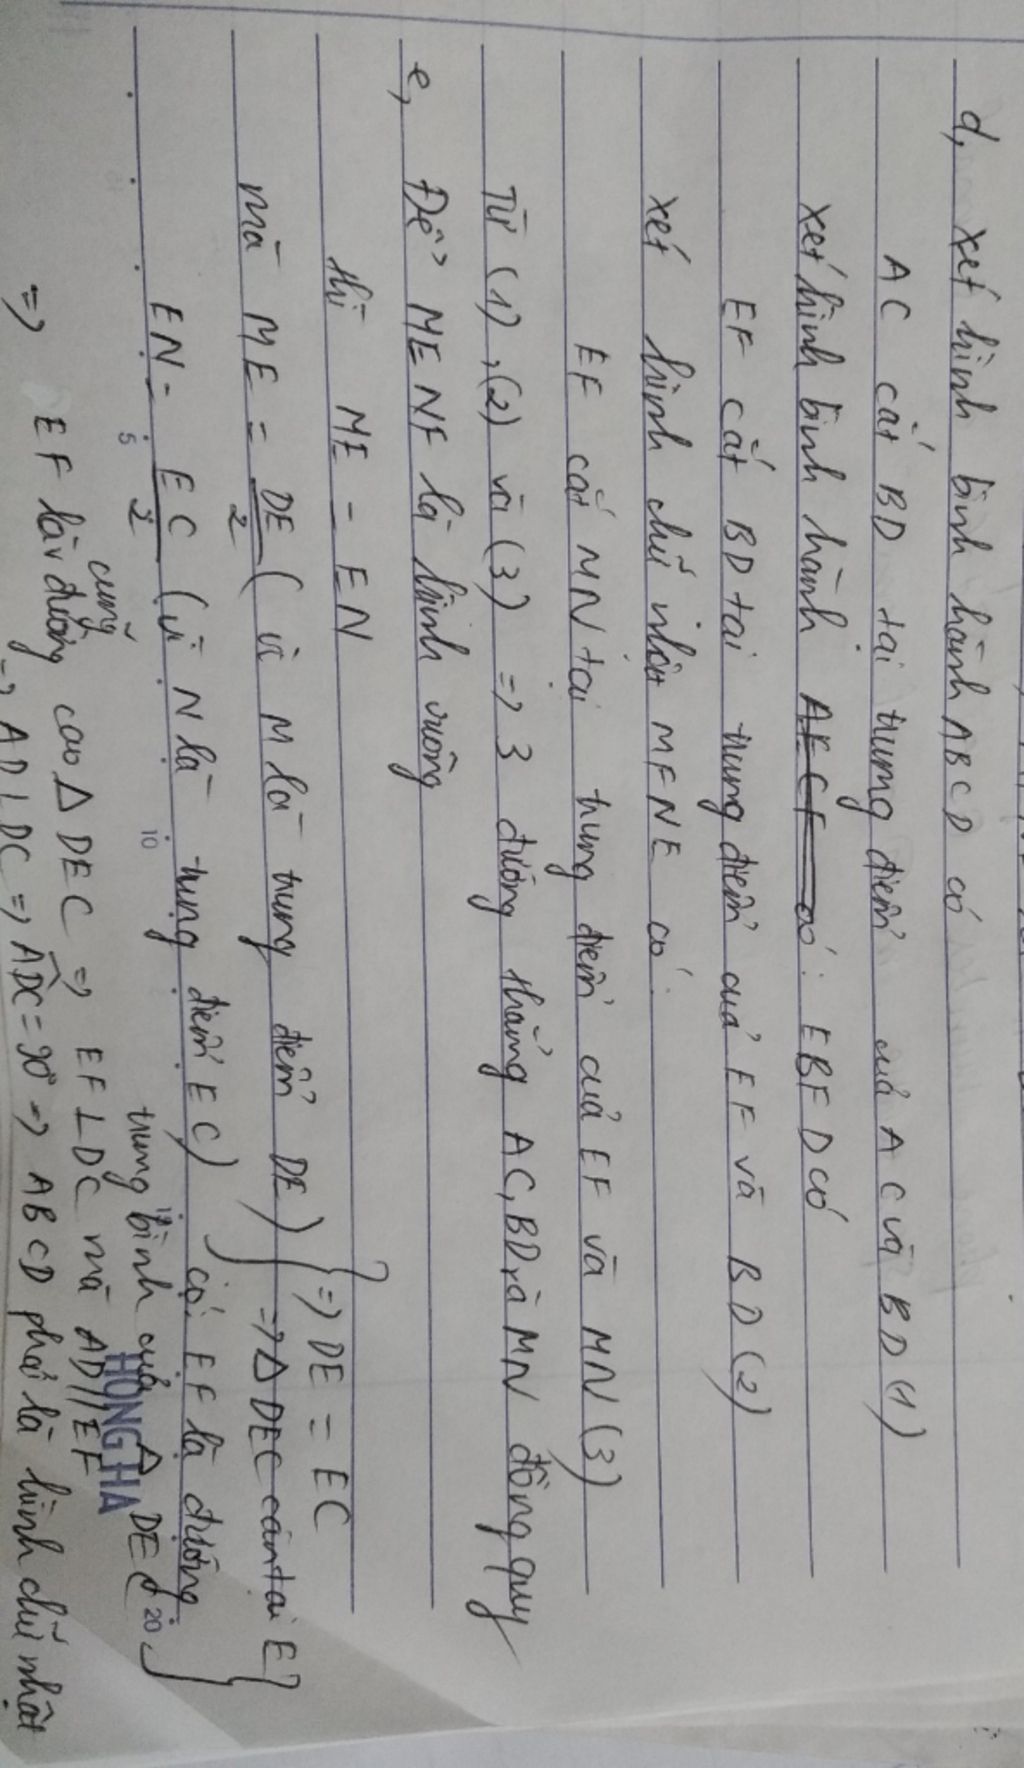 d, xét hình bình hành ABCD có
AC cắt BD tại trung điểm của AC và BD (1)
xét hình bình hành AECF có: EBFD có
EF cắt BD tại trung điểm của EF và BD (2)
xét hình chữ nhật MFNE có:
EF cắt MN tại trung điểm của EF và MN (3)
Từ (1), (2) và (3) => 3 đường thẳng AC, BD và MN đồng quy
e, Để MENF là hình vuông
thì ME = EN
mà ME = DE/2 (vì M là trung điểm DE) => DE = EC
=> Δ DEC cân tại E
EN = EC/2 (vì N là trung điểm EC) có: EF là đường
trung bình của Δ DEC
=> EF là cũng đường cao Δ DEC => EF ⊥ DC mà AD // EF
=> AD ⊥ DC => ADC = 90° => ABCD phải là hình chữ nhật
HONG HA
5
10
20